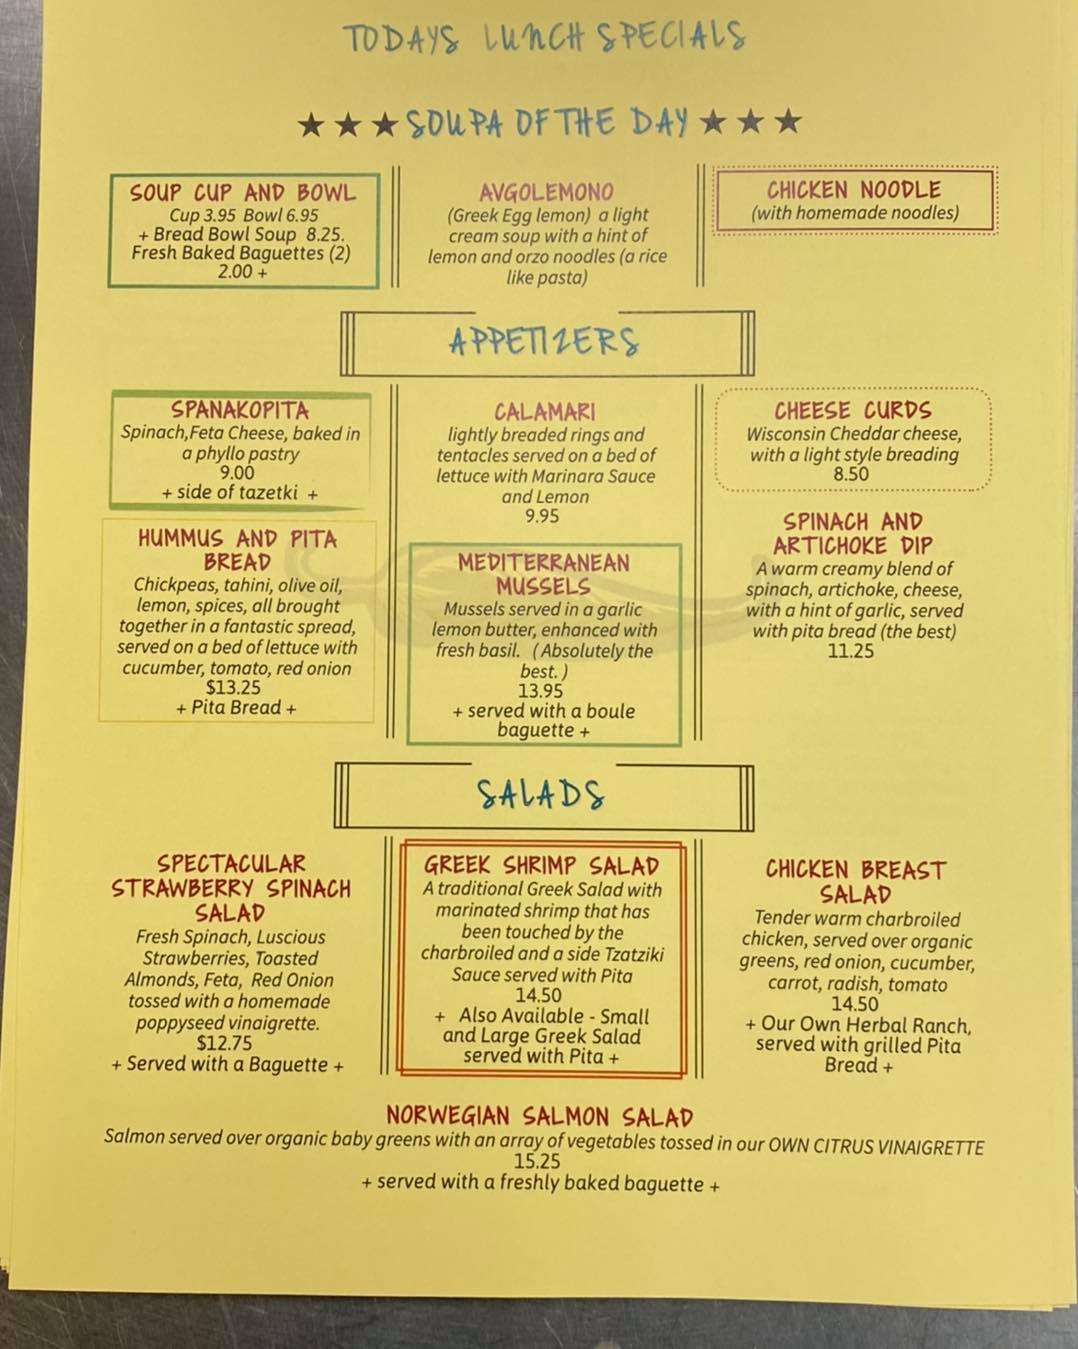 TODAYS LUNCH SPECIALS
★ ★ ★ SOUPA OF THE DAY ★ ★ ★
SOUP CUP AND BOWL
Cup 3.95 Bowl 6.95
+ Bread Bowl Soup 8.25.
Fresh Baked Baguettes (2)
2.00 +
AVGOLEMONO
(Greek Egg lemon) a light
cream soup with a hint of
lemon and orzo noodles (a rice
like pasta)
CHICKEN NOODLE
(with homemade noodles)
APPETIZERS
SPANAKOPITA
Spinach,Feta Cheese, baked in
a phyllo pastry
9.00
+ side of tazetki +
HUMMUS AND PITA
BREAD
Chickpeas, tahini, olive oil,
lemon, spices, all brought
together in a fantastic spread,
served on a bed of lettuce with
cucumber, tomato, red onion
$13.25
+ Pita Bread +
CALAMARI
lightly breaded rings and
tentacles served on a bed of
lettuce with Marinara Sauce
and Lemon
9.95
MEDITERRANEAN
MUSSELS
Mussels served in a garlic
lemon butter, enhanced with
fresh basil. (Absolutely the
best. )
13.95
+ served with a boule
baguette +
CHEESE CURDS
Wisconsin Cheddar cheese,
with a light style breading
8.50
SPINACH AND
ARTICHOKE DIP
A warm creamy blend of
spinach, artichoke, cheese,
with a hint of garlic, served
with pita bread (the best)
11.25
SALADS
SPECTACULAR
STRAWBERRY SPINACH
SALAD
Fresh Spinach, Luscious
Strawberries, Toasted
Almonds, Feta, Red Onion
tossed with a homemade
poppyseed vinaigrette.
$12.75
+ Served with a Baguette +
GREEK SHRIMP SALAD
A traditional Greek Salad with
marinated shrimp that has
been touched by the
charbroiled and a side Tzatziki
Sauce served with Pita
14.50
+ Also Available - Small
and Large Greek Salad
served with Pita +
CHICKEN BREAST
SALAD
Tender warm charbroiled
chicken, served over organic
greens, red onion, cucumber,
carrot, radish, tomato
14.50
+ Our Own Herbal Ranch,
served with grilled Pita
Bread +
NORWEGIAN SALMON SALAD
Salmon served over organic baby greens with an array of vegetables tossed in our OWN CITRUS VINAIGRETTE
15.25
+ served with a freshly baked baguette +